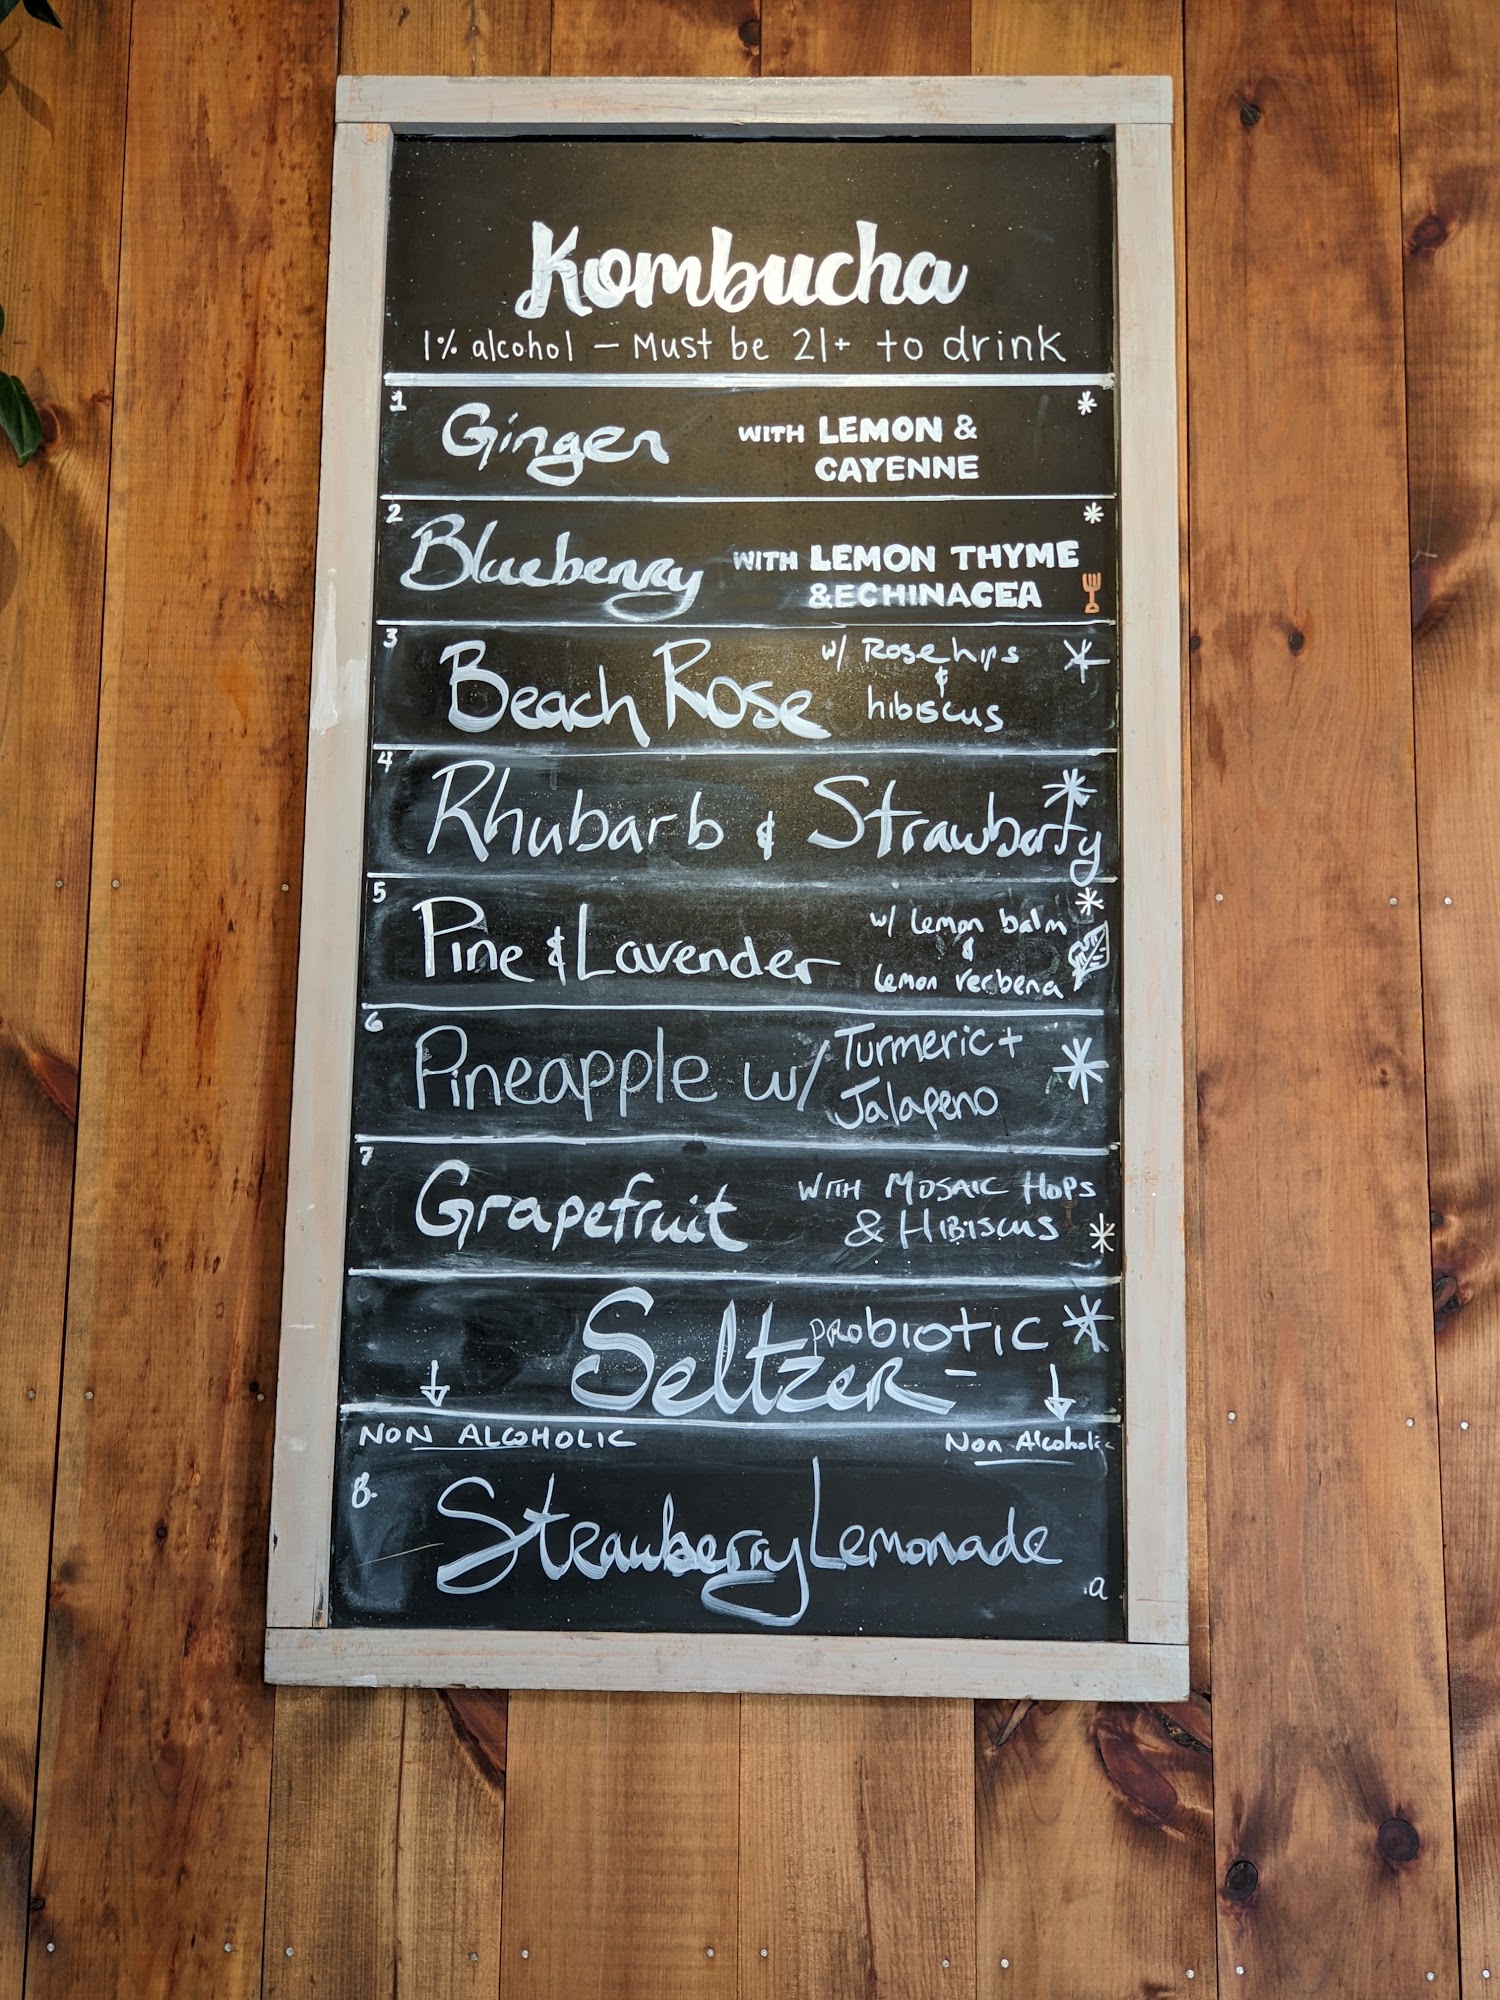 Kombucha
1% alcohol – Must be 21+ to drink
1
Ginger WITH LEMON &
CAYENNE *
2
Blueberry WITH LEMON THYME
& ECHINACEA *
3
Beach Rose w/ Rosehips
&
hibiscus *
4
Rhubarb & Strawberry *
5
Pine & Lavender w/ lemon balm
&
lemon verbena *
6
Pineapple w/ Turmeric +
Jalapeno *
7
Grapefruit WITH MOSAIC HOPS
& HIBISCUS *
PROBIOTIC *
Seltzer –
NON ALCOHOLIC Non Alcoholic
8.
Strawberry Lemonade
.a